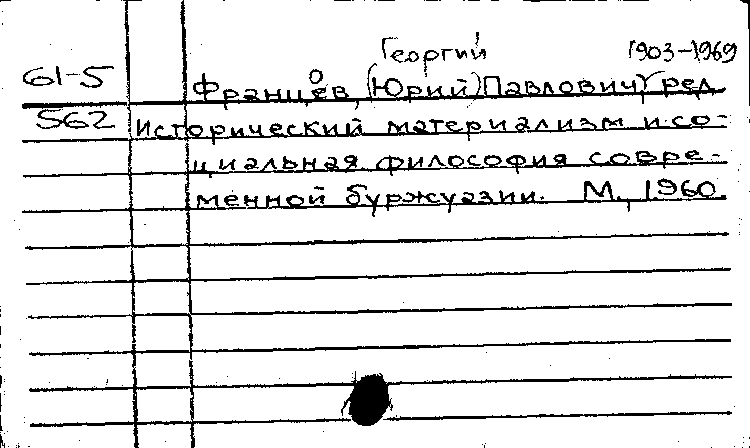 Георгий 1903-1969
61-5 Францёв, (Юрий) Павлович, ред.
562 Исторический материализм и со-
циальная философия совре-
менной буржуазии. М., 1960.